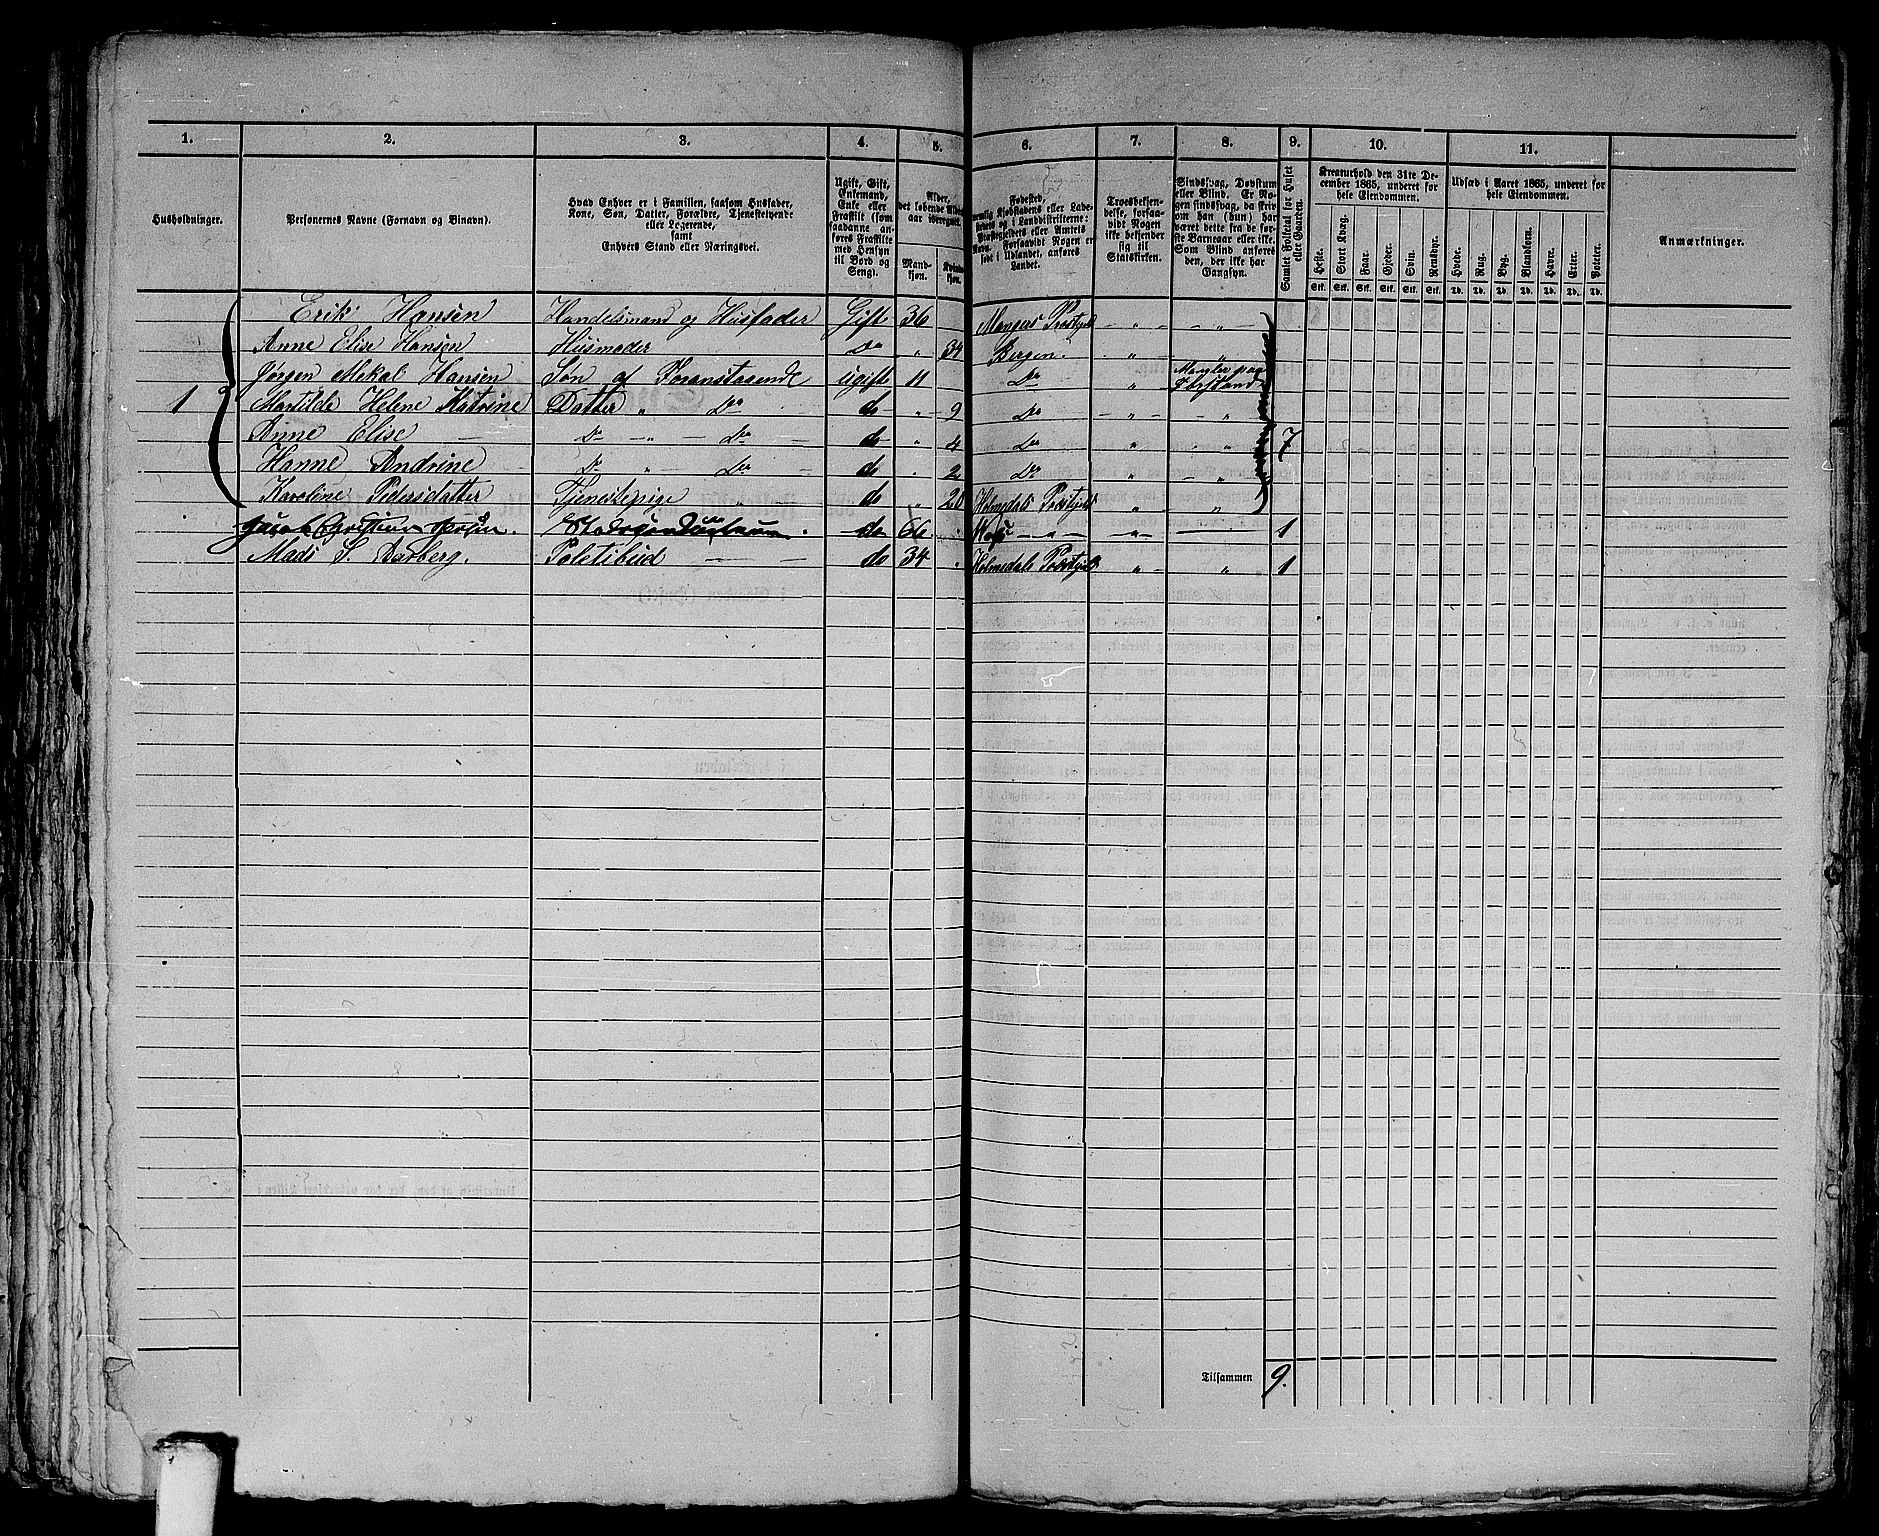 1. 2. 3. 4. 5. 6. 7. 8. 9. 10. 11.
Husholdninger.
Personernes Navne (Fornavn og Binavn).
Hvad Enhver er i Familien, saasom Husfader,
Kone, Søn, Datter, Forældre, Tjenestetyende
eller Logerende,
samt
Enhvers Stand eller Næringsvei.
Ugift, Gift,
Enkemand,
Enke eller
Fraskilt (som
saadanne an-
føres Fraskilte
med Hensyn
til Bord og
Seng).
Alder,
det løbende Alders-
aar iberegnet.
Mand-
kjøn.
Kvinde-
kjøn.
Fødested,
nemlig Kjøbstadens eller Lade-
stedets og i Landdistrikterne:
Præstegjeldets eller Amtets
Navn. Forsaavidt Nogen er
født i Udlandet, anføres
Landet.
Troesbekjen-
delse, forsaa-
vidt Nogen
ikke bekjender
sig til
Statskirken.
Sindssvag, Døvstum
eller Blind. Er No-
gen sindssvag, da skrives
om han (hun) har
været dette fra de før-
ste Barneaar eller ikke.
Som Blind anføres
den, der ikke har
Gangsyn.
Samlet Folketal for Huset
eller Gaarden.
Kreaturhold den 31te De-
cember 1865, underet for
hele Eiendommen.
Heste. Stort Kvæg. Faar. Gjeder. Svin. Rensdyr.
Stk. Stk. Stk. Stk. Stk. Stk.
Udsæd i Aaret 1865, underet for
hele Eiendommen.
Hvede. Rug. Byg. Blandkorn. Havre. Erter. Poteter.
Td. Td. Td. Td. Td. Td. Td.
Anmærkninger.
Erik Hansen Handelsmand og Husfader Gift 36 Mangers Præstgjeld „ „
Anne Elise Hansen Husmoder Do „ 34 Bergen. „ „
Jørgen Mekal Hansen Søn af Foranstaaende ugift 11 Do „ Mangler paa Forstand
1 Martilde Helene Katrine Datter „ Do do „ 9 Do „ „
Anne Elise Do „ Do do „ 4 Do „ „ 7
Hanne Andrine Do „ Do do „ 2 Do „ „
Karoline Pedersdatter Tjenestepige do „ 20 Holmedals Præstgjeld „ „
Jacob Christian do 66 „ „ 1
Mads S. Politibud do 34 „ Holmedals Præstgjeld „ „ 1
Tilsammen 9.